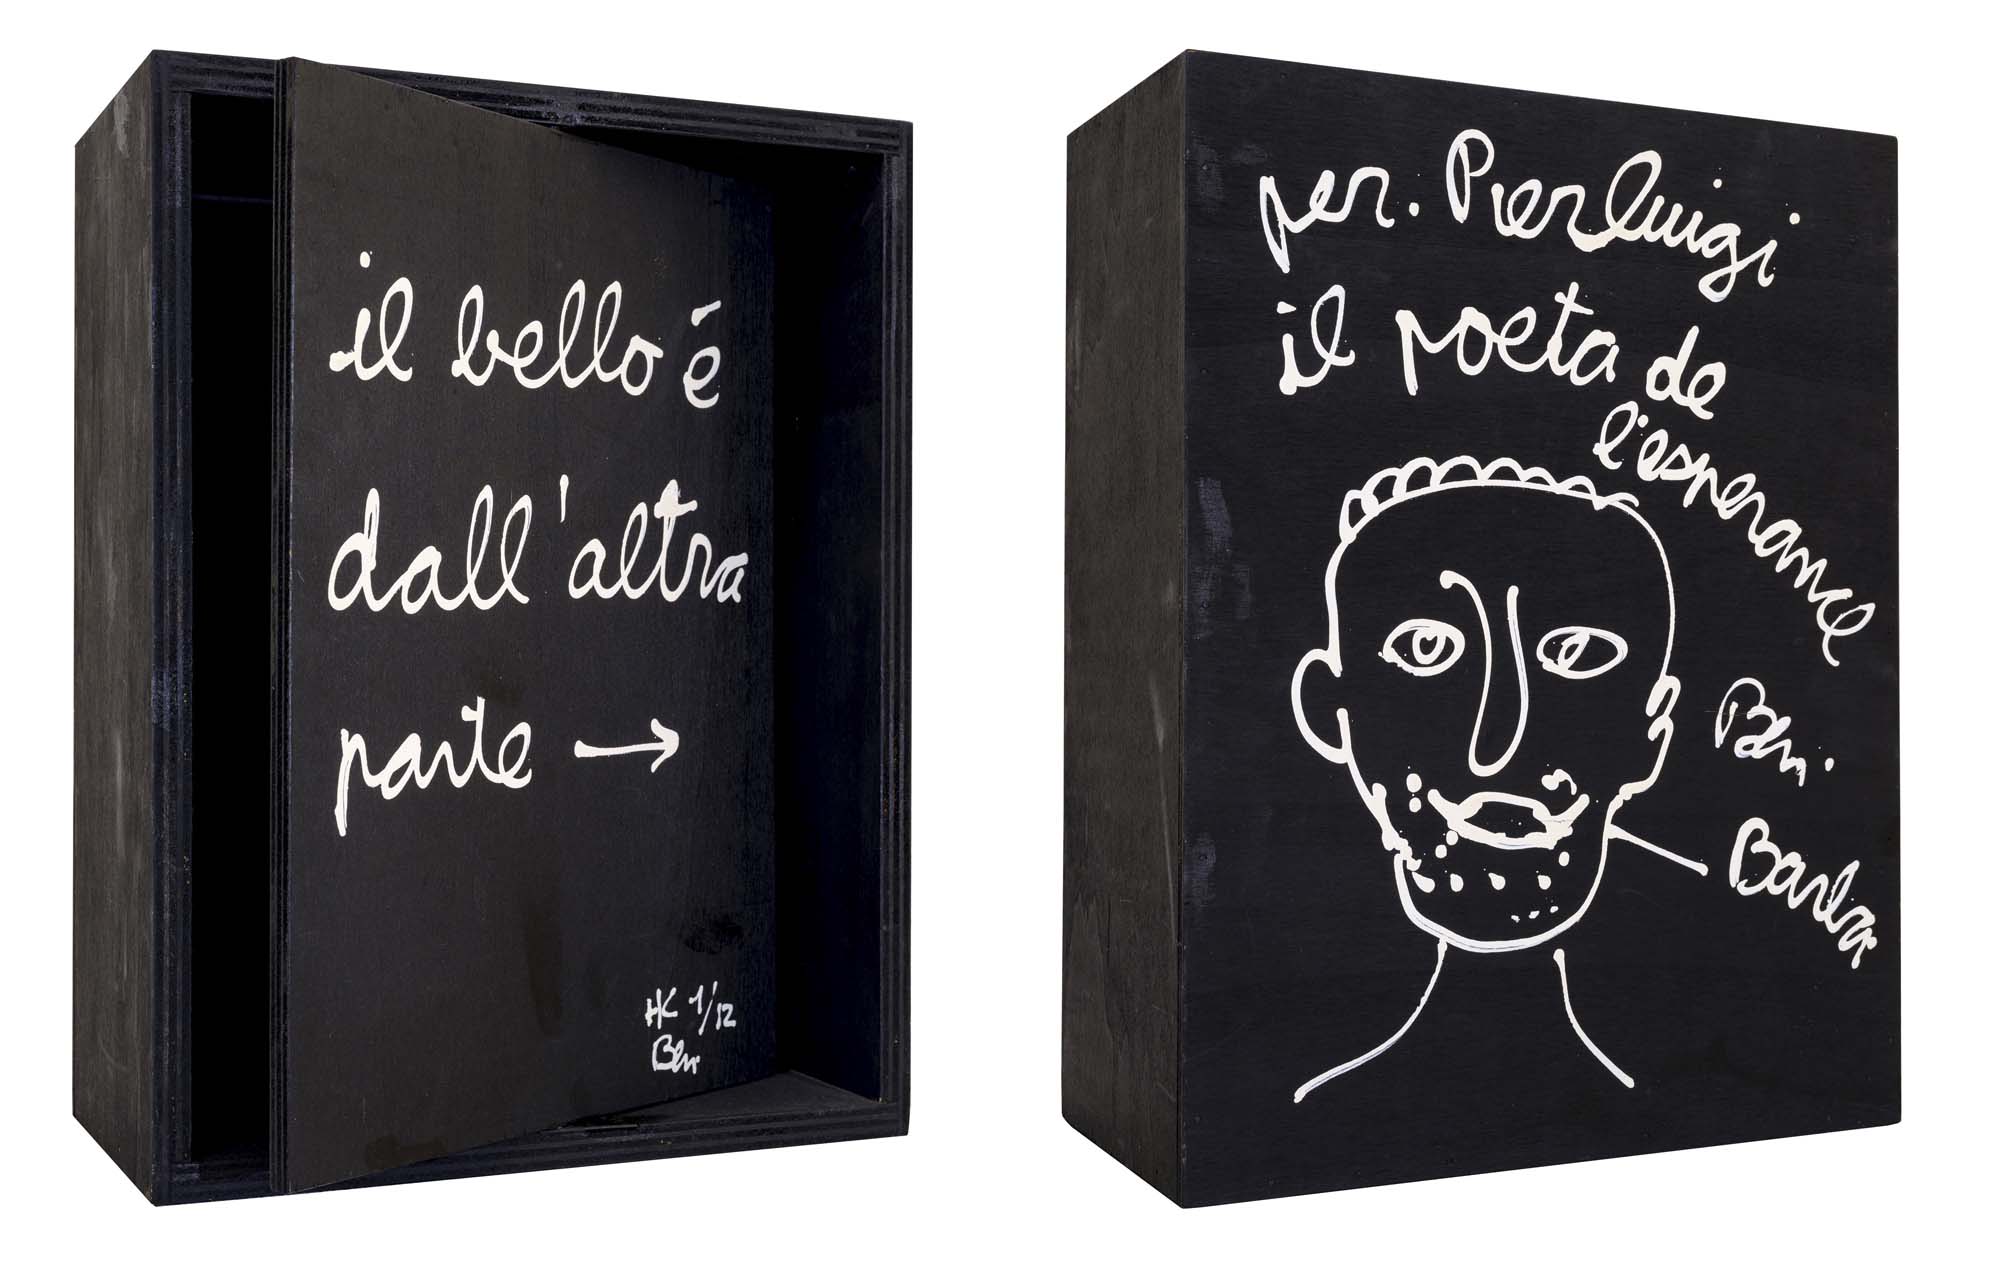 il bello é
dall'altra
parte →
HC 1/12
Ben
per. Pierluigi
il poeta de
l'esperance
Ben
Barba